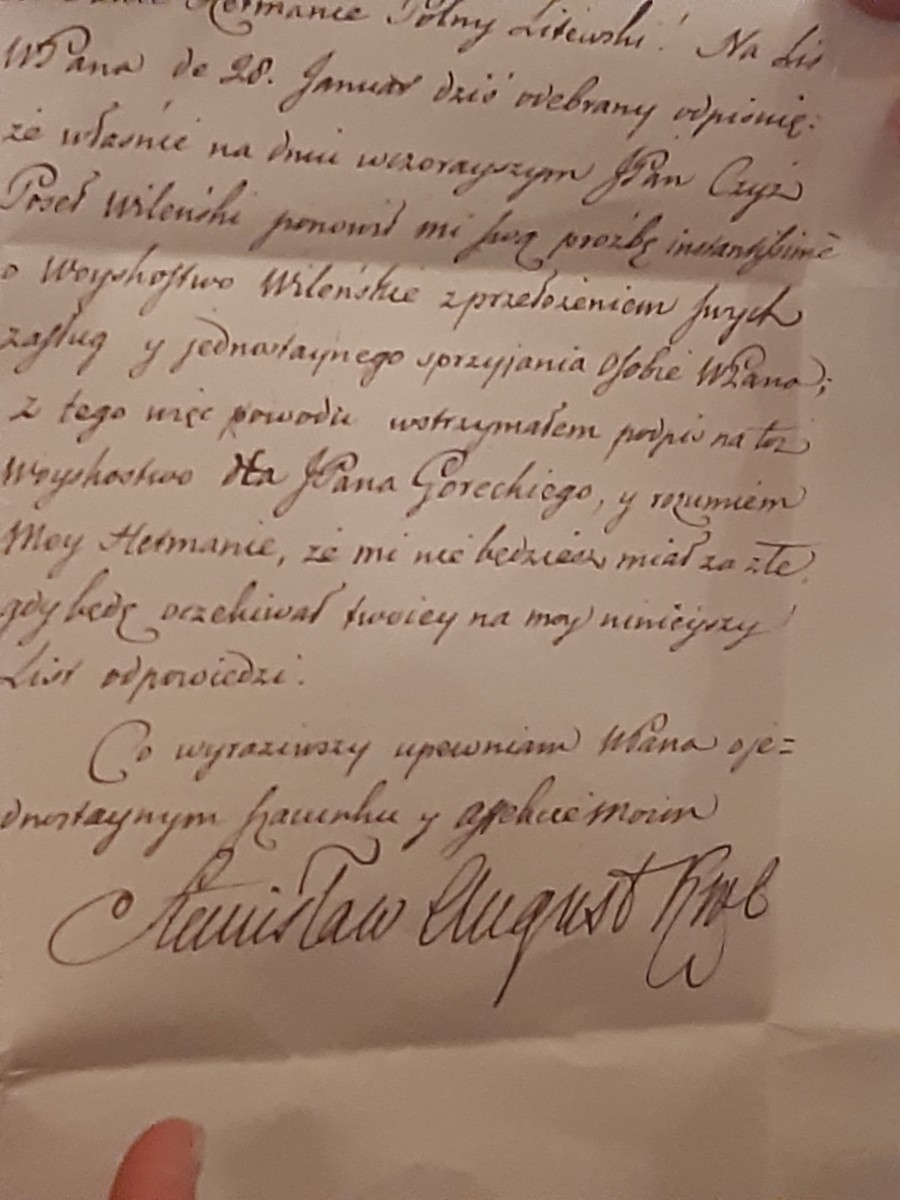 Hetmanie Polny Litewski! Na Lis
WPana de 28. Januar dziś odebrany odpisuię:
że właśnie na dniu wczorayszym JPan Czyż
Poseł Wileński ponowił mi swą proźbę instantissime
o Woyskostwo Wileńskie z przełożeniem swych
zasług y jednostaynego sprzyiania Osobie WPana;
z tego więc powodu wstrzymałem podpis na toż
Woyskostwo dla JPana Goreckiego, y rozumiem
Moy Hetmanie, że mi nie będziesz miał za złe,
gdy będę oczekiwał twoiey na moy ninieyszy
List odpowiedzi.
Co wyraziwszy upewniam WPana o je=
dnostaynym szacunku y affekcie moim
Stanisław August Król